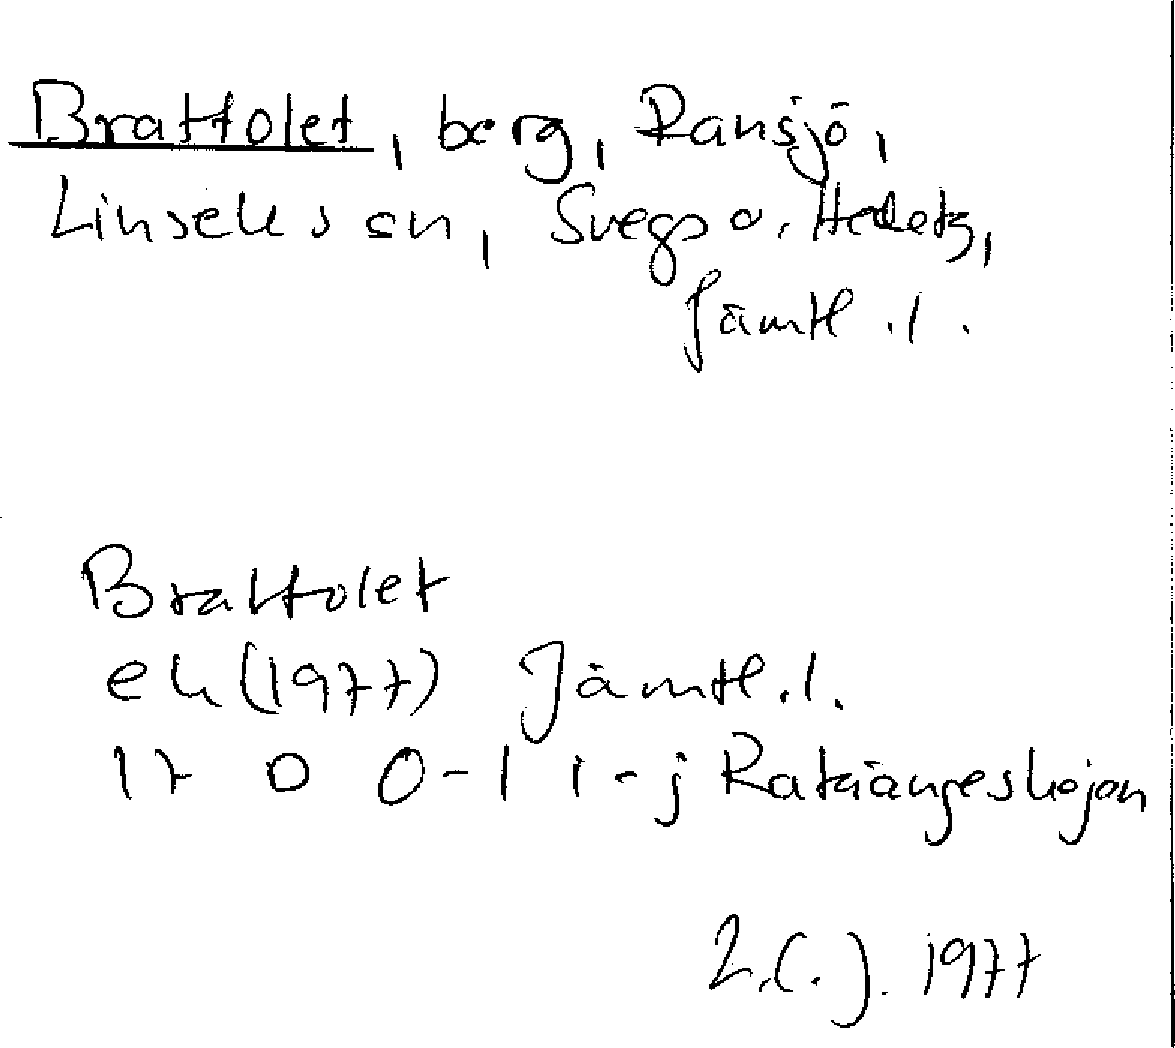 Brattolet, berg, Ransjö,
Linsells sn, Svegs o. Hedetg,
Jämtl. l.
Brattolet
ek (1977) Jämtl. l.
17 D 0-1 i-j Rataängeshöjen
L.C.J. 1977